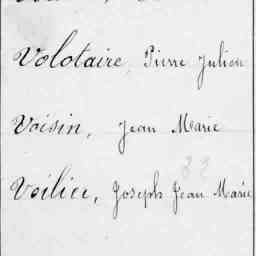 Volotaire, Pierre Julien
Voisin, Jean Marie
83
Voilier, Joseph Jean Marie